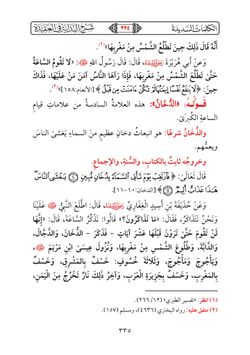 الكلمات السديدة
٣٣٥
شرح البداية في العقيدة
أنَّهُ قَالَ ذَلكَ حِينَ تَطْلُعُ الشَّمْسُ مِنْ مَغْرِبِهَا»(١).
وَعَنْ أَبِي هُرَيْرَةَ رضي الله عنه، قالَ: قَالَ رَسُولُ اللهِ ﷺ: «لا تَقُومُ السَّاعَةُ
حَتَّى تَطْلُعَ الشَّمْسُ مِنْ مَغْرِبِهَا، فَإِذَا رَآهَا النَّاسُ آمَنَ مَنْ عَلَيْهَا، فَذَاكَ
حِينَ: ﴿لَا يَنْفَعُ نَفْسًا إِيمَانُهَا لَمْ تَكُنْ آمَنَتْ مِنْ قَبْلُ﴾ [الأنعام:١٥٨]»(٢).
قـولـه: «الدُّخَانُ»: هذه العلامةُ السادسةُ من علاماتِ قيامِ
الساعةِ الكُبرَى.
والدُّخَانُ شرعًا: هو انبعاثُ دخانٍ عظيمٍ منَ السماءِ يَغشَى الناسَ
ويعمُّهم.
وخروجُه ثابتٌ بالكتابِ، والسُّنَّةِ، والإجماعِ.
قَالَ تَعَالَى: ﴿فَارْتَقِبْ يَوْمَ تَأْتِي السَّمَاءُ بِدُخَانٍ مُبِينٍ ۝١٠ يَغْشَى النَّاسَ
هَذَا عَذَابٌ أَلِيمٌ ۝١١﴾ [الدخان:١٠-١١].
وَعَنْ حُذَيْفَةَ بْنِ أَسِيدٍ الْغِفَارِيِّ رضي الله عنه، قَالَ: اطَّلَعَ النَّبِيُّ ﷺ عَلَيْنَا
وَنَحْنُ نَتَذَاكَرُ، فَقَالَ: «مَا تَذَاكَرُونَ؟» قَالُوا: نَذْكُرُ السَّاعَةَ، قَالَ: «إِنَّهَا
لَنْ تَقُومَ حَتَّى تَرَوْنَ قَبْلَهَا عَشْرَ آيَاتٍ - فَذَكَرَ - الدُّخَانَ، وَالدَّجَّالَ،
وَالدَّابَّةَ، وَطُلُوعَ الشَّمْسِ مِنْ مَغْرِبِهَا، وَنُزُولَ عِيسَى ابْنِ مَرْيَمَ ﷺ،
وَيَأْجُوجَ وَمَأْجُوجَ، وَثَلَاثَةَ خُسُوفٍ: خَسْفٌ بِالْمَشْرِقِ، وَخَسْفٌ
بِالْمَغْرِبِ، وَخَسْفٌ بِجَزِيرَةِ الْعَرَبِ، وَآخِرُ ذَلِكَ نَارٌ تَخْرُجُ مِنَ الْيَمَنِ،
(١) انظر: «تفسير الطبري» (١٢/ ٢٦٦).
(٢) متفق عليه: رواه البخاري (٤٦٣٦)، ومسلم (١٥٧).
٣٣٥